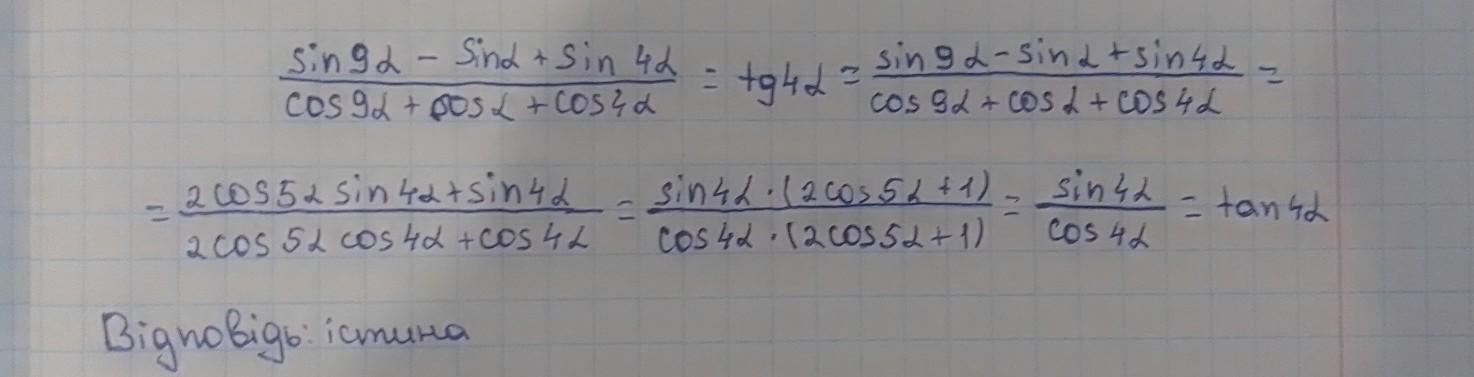 (sin9α − sinα + sin4α)/(cos9α + cosα + cos4α) = tg4α = (sin9α − sinα + sin4α)/(cos9α + cosα + cos4α) =
= (2cos5α sin4α + sin4α)/(2cos5α cos4α + cos4α) = (sin4α · (2cos5α + 1))/(cos4α · (2cos5α + 1)) = sin4α/cos4α = tan4α
Відповідь: істина